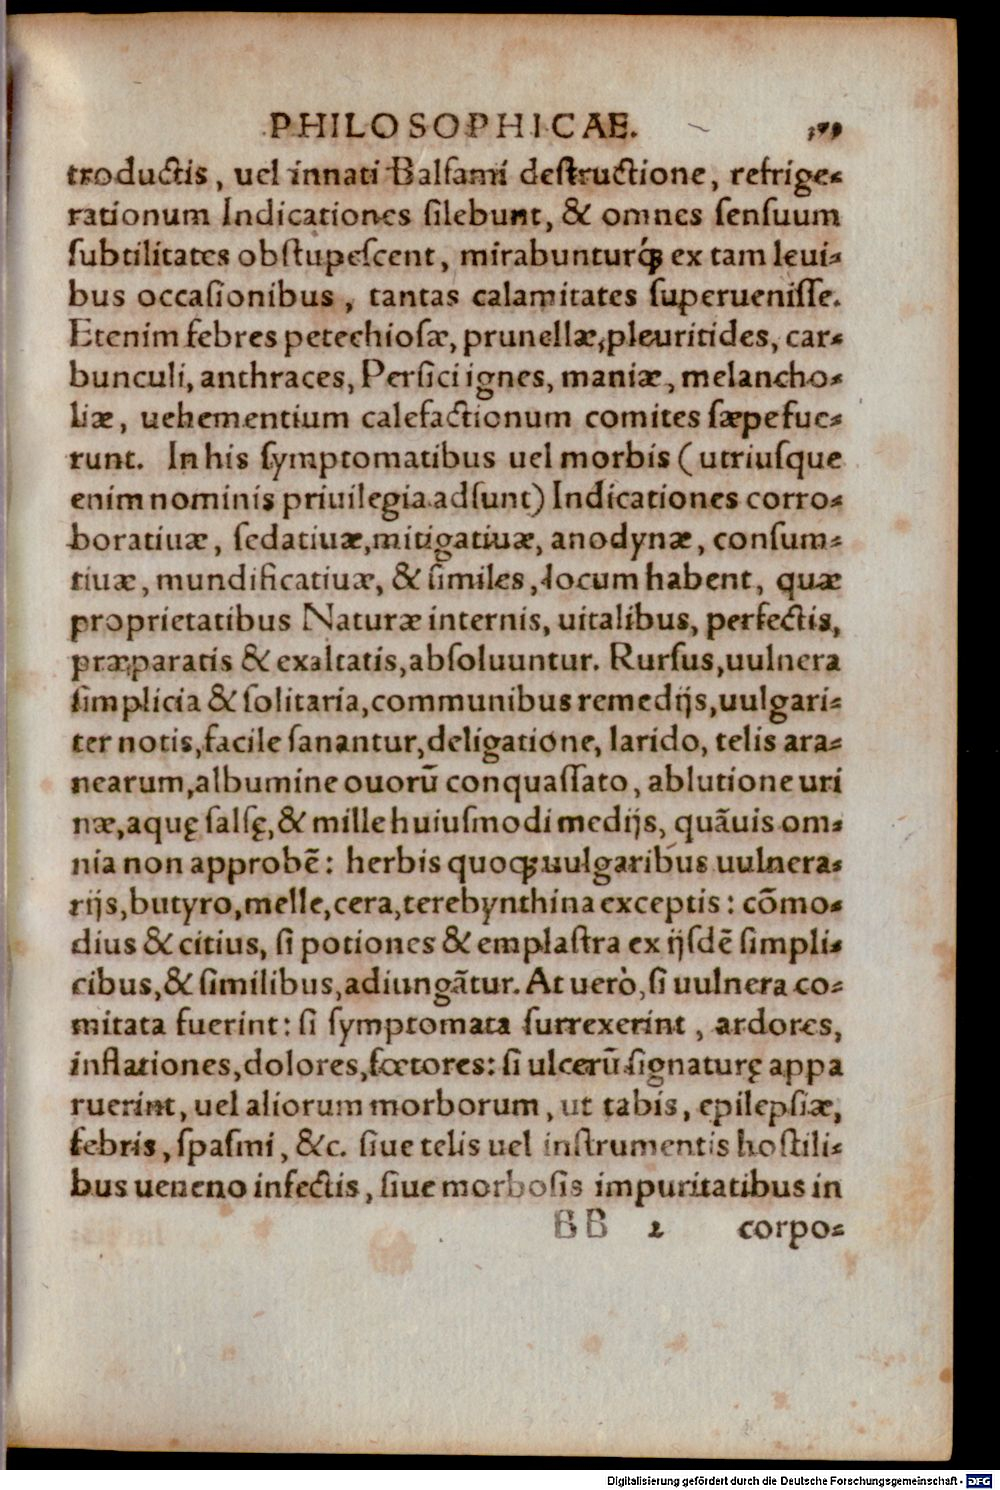 PHILOSOPHICAE.
troductis, uel innati Balsami destructione, refrige-
rationum Indicationes silebunt, & omnes sensuum
subtilitates obstupescent, mirabunturq́ꝫ ex tam leui-
bus occasionibus, tantas calamitates superuenisse.
Etenim febres petechiosæ, prunellæ, pleuritides, car-
bunculi, anthraces, Persici ignes, maniæ, melancho-
liæ, uehementium calefactionum comites sæpe fue-
runt. In his symptomatibus uel morbis (utriusque
enim nominis priuilegia adsunt) Indicationes corro-
boratiuæ, sedatiuæ, mitigatiuæ, anodynæ, consum-
tiuæ, mundificatiuæ, & similes, locum habent, quæ
proprietatibus Naturæ internis, uitalibus, perfectis,
præparatis & exaltatis, absoluuntur. Rursus, uulnera
simplicia & solitaria, communibus remedijs, uulgari-
ter notis, facile sanantur, deligatione, larido, telis ara-
nearum, albumine ouorū conquassato, ablutione uri
næ, aquę salsę, & mille huiusmodi medijs, quāuis om-
nia non approbē: herbis quoqꝫ uulgaribus uulnera-
rijs, butyro, melle, cera, terebynthina exceptis: cōmo-
dius & citius, si potiones & emplastra ex ijsdē simpli-
cibus, & similibus, adiungātur. At uerò, si uulnera co-
mitata fuerint: si symptomata surrexerint, ardores,
inflationes, dolores, fœtores: si ulcerū signaturę appa
ruerint, uel aliorum morborum, ut tabis, epilepsiæ,
febris, spasmi, &c. siue telis uel instrumentis hostili-
bus ueneno infectis, siue morbosis impuritatibus in
BB 2 corpo-
Digitalisierung gefördert durch die Deutsche Forschungsgemeinschaft - DFG